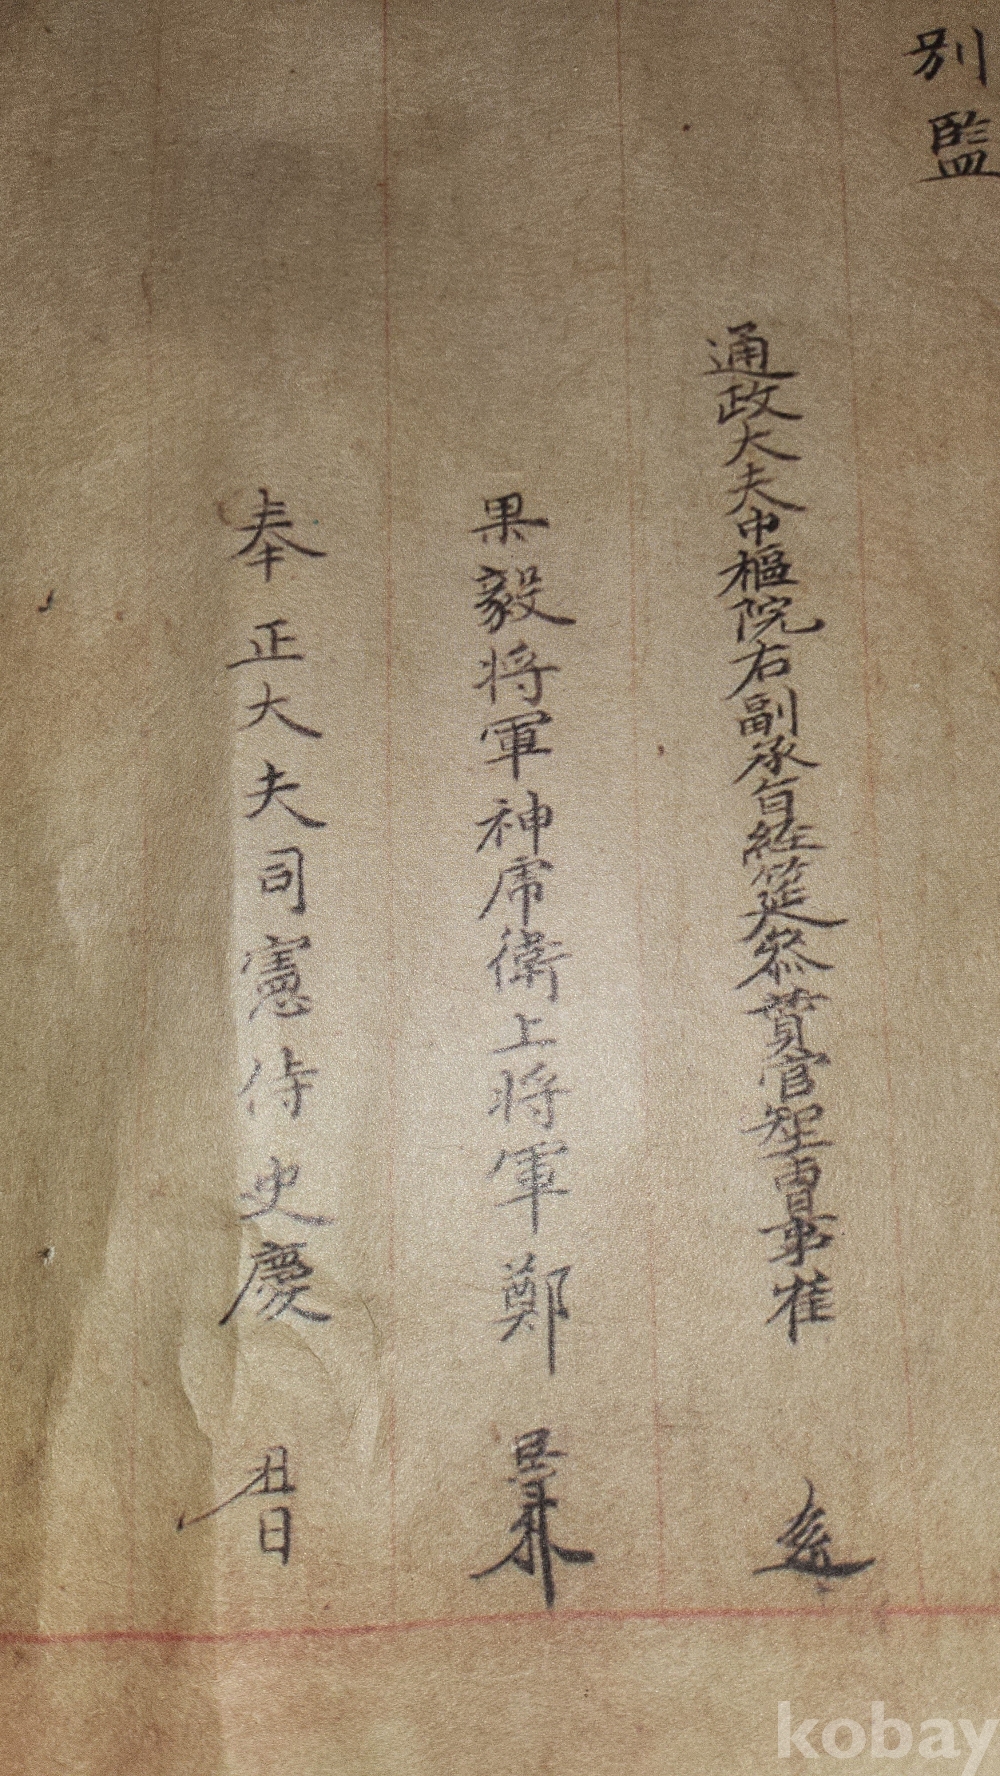 別監
通政大夫中樞院右副承旨經筵叅賛官知曺事崔
果毅將軍神席衛上將軍鄭
奉正大夫司憲侍史慶
kobay